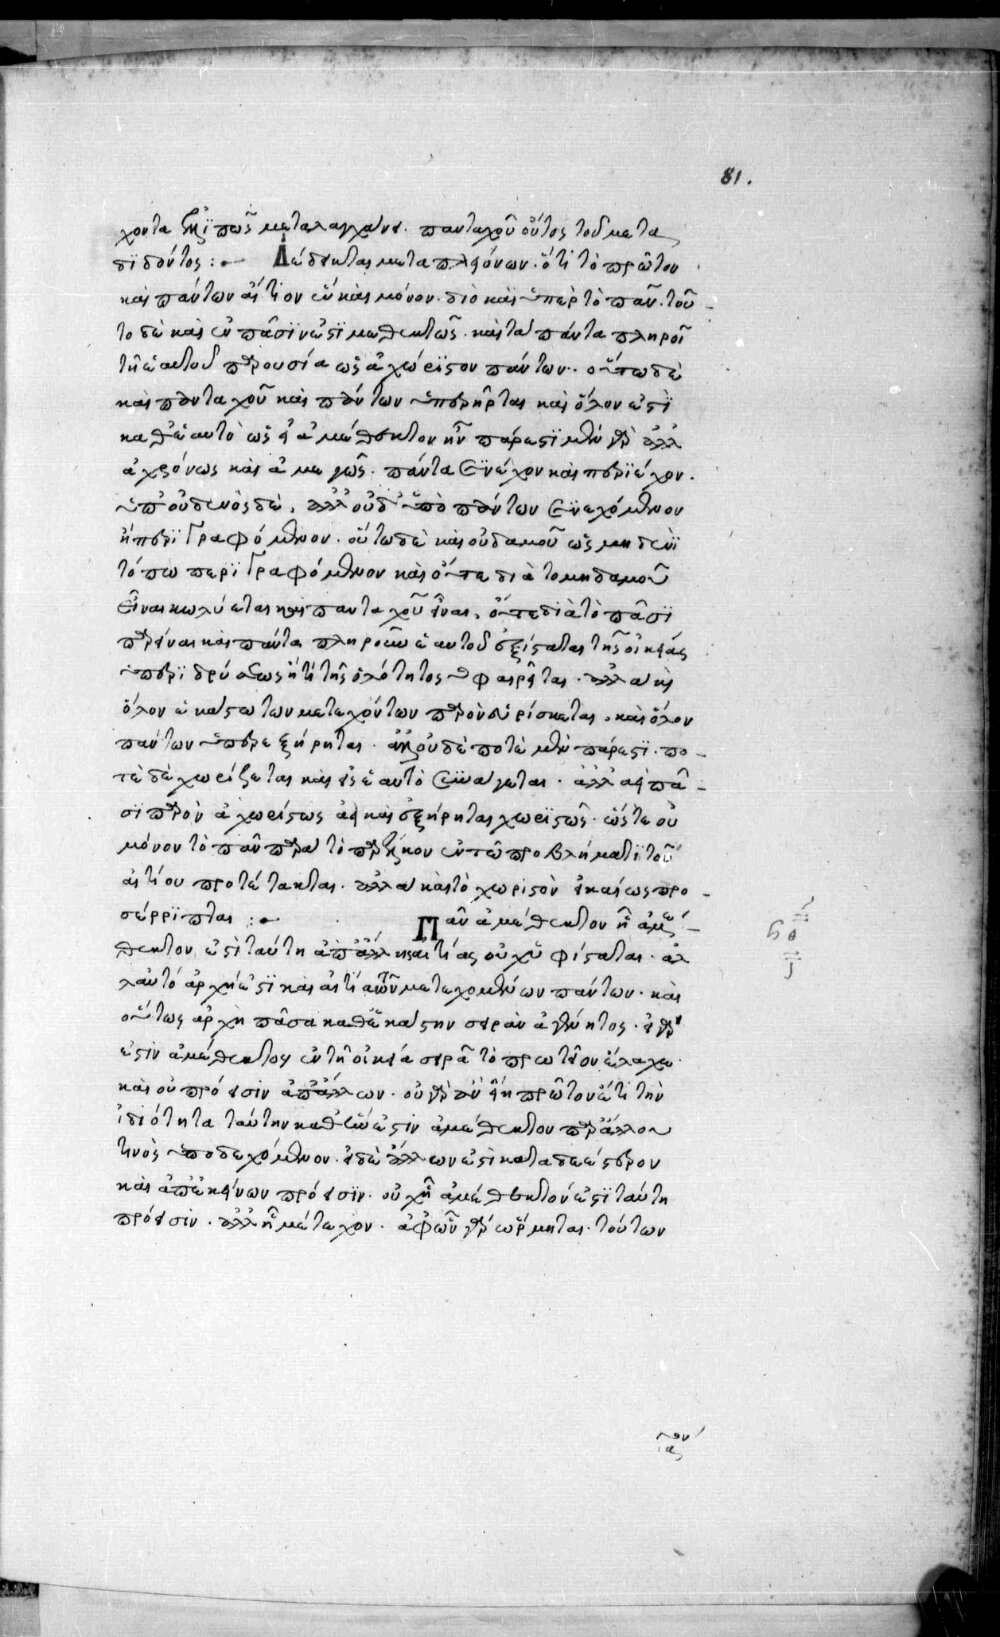 81.
χοντα ἐξ ἴσης μεταλαγχάνει. πανταχοῦ ὄντος τοῦ μετα
διδόντος :~ Δέδεικται μετὰ πλειόνων. ὅτι τὸ πρῶτον
καὶ πάντων αἴτιον ἓν καὶ μόνον. διὸ καὶ ὑπὲρ τὸ πᾶν. τοῦ
το δὲ καὶ ἐν πᾶσίν ἐστι μεθεκτῶς. καὶ τὰ πάντα πληροῖ
τῇ ἑαυτοῦ παρουσία ὡς ἀχώριστον πάντων. οὕτω δὲ
καὶ πανταχοῦ καὶ πάντων ὑπερῄρται καὶ ὅλον ἐστὶ
καθ' ἑαυτὸ ὡς εἰ ἀμέθεκτον ἦν πάρεστι μὲν γὰρ ἀλλ'
ἀχρόνως καὶ ἀμιγῶς. πάντα συνέχον καὶ περιέχον.
ὑπ' οὐδενὸς δὲ, ἀλλ' οὐδ' ὑπὸ πάντων συνεχόμενον
ἢ περιγραφόμενον. οὕτω δὲ καὶ οὐδαμοῦ ὡς μηδενὶ
τόπω περιγραφόμενον καὶ οὔτε διὰ το μηδαμοῦ
εἶναι κωλύεται καὶ πανταχοῦ εἶναι, οὔτε διὰ τὸ πᾶσι
παρεῖναι καὶ πάντα πληροῦν ἑαυτοῦ ἐξίσταται τῆς οἰκείας
ὑπεριδρύσεως ἤ τι τῆς ὁλότητος ὑφαιρεῖται. ἀλλὰ καὶ
ὅλον ἑκάστω των μετεχόντων παρὸν εὑρίσκεται, καὶ ὅλον
πάντων ὑπερεξήρηται. καὶ οὐδέποτε μὲν πάρεστι. πο-
τὲ δὲ χωρίζεται καὶ εἰς ἑαυτὸ συνάγεται. ἀλλ' ἀεὶ πᾶ-
σι παρὸν ἀχωρίστως ἀεὶ καὶ ἐξήρηται χωριστῶς. ὥστε οὐ
μόνον τὸ πᾶν παρὰ τὸ προσῆκον ἐν τῶ προβλήματι τοῦ
αἰτίου προτέτακται. ἀλλὰ καὶ τὸ χωριστὸν εἰκαίως προ-
σέρριπται :~ Πᾶν ἀμέθεκτον ἧ ἀμέ-
θεκτον ἐστὶ ταύτη ἀπ' ἄλλης αἰτίας οὐχ ὑφίσταται. ἀλ
λ' αὐτὸ ἀρχή ἐστι καὶ αἰτία τῶν μετεχομένων πάντων. καὶ
οὕτως ἀρχὴ πᾶσα καθ' ἑκάστην σειρὰν ἀγένητος. εἰ γάρ
ἐστιν ἀμέθεκτον ἐν τῇ οἰκεία σειρᾶ τὸ πρωτεῖον ἔλαχε.
καὶ οὐ πρόεισιν ἀπ' ἄλλων. οὐ γὰρ ἂν εἴη πρῶτον ἔτι τὴν
ἰδιότητα ταύτην καθ' ἥν ἐστιν ἀμέθεκτον παρ' ἄλλου
τινὸς ὑποδεχόμενον. εἰ δὲ ἄλλων ἐστὶ καταδεέστερον
καὶ ἀπ' ἐκείνων πρόεισιν. οὐχ ἧ ἀμέθεκτόν ἐστι ταύτη
πρόεισιν. ἀλλ' ἧ μέτεχον. ἀφ' ὧν γὰρ ὥρμηται. τούτων